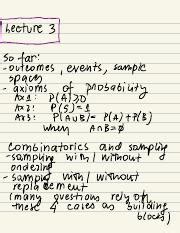 Lecture 3
So far:
- outcomes, events, sample
space
- axioms of probability
Ax1: P(A)≥0
Ax2: P(S)=1
Ax3: P(A∪B)= P(A)+P(B)
when A∩B=∅
combinatorics and sampling
- sampling with/without
ordering
- sampling with/without
replacement
(many questions rely on
these 4 cases as building
blocks)